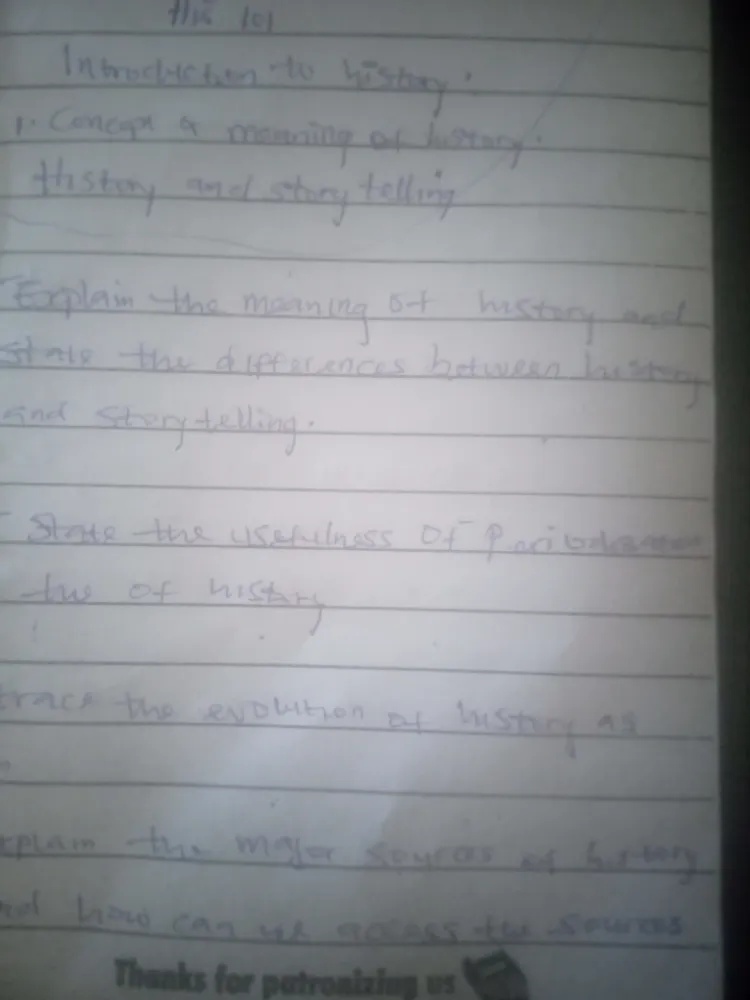 His 101
Introduction to history.
1. Concept & meaning of history.
History and story telling
Explain the meaning of history and
state the differences between history
and story telling.
State the usefulness of
the of history
trace the evolution of history as
explain the major sources of history
and how can we access the sources
Thanks for patronizing us